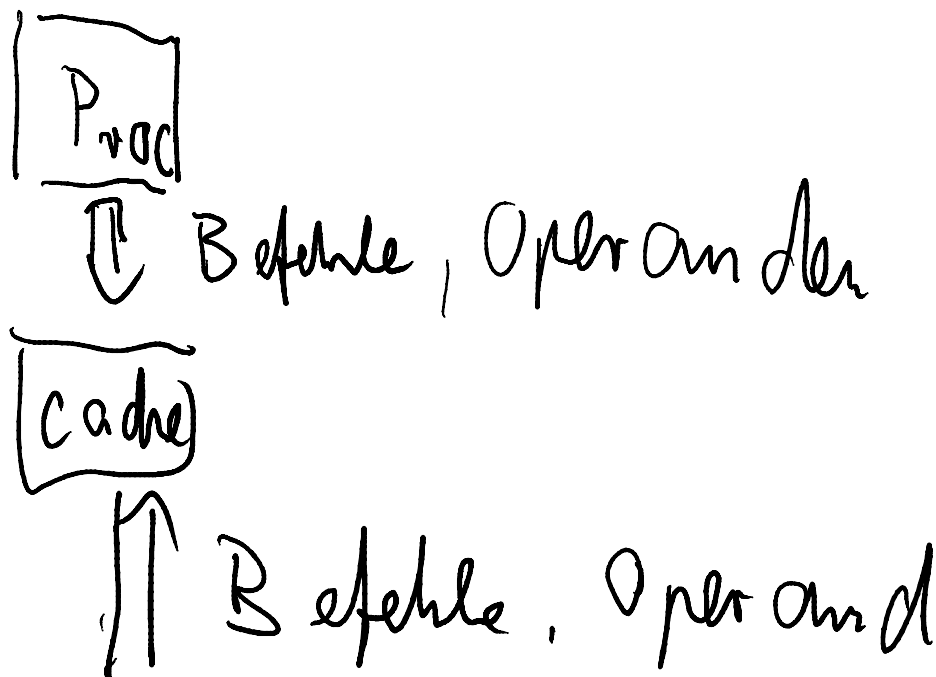 Proc
Befehle, Operanden
cache
Befehle, Operand